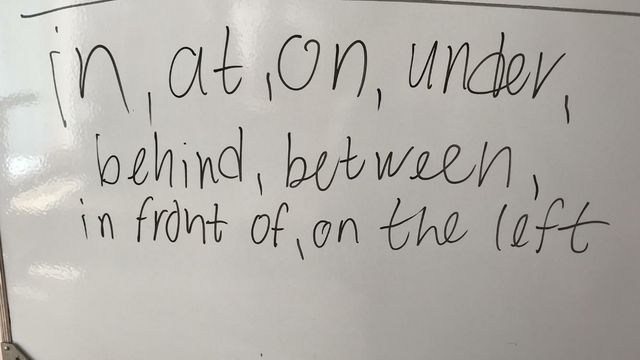 in, at, on, under,
behind, between,
in front of, on the left